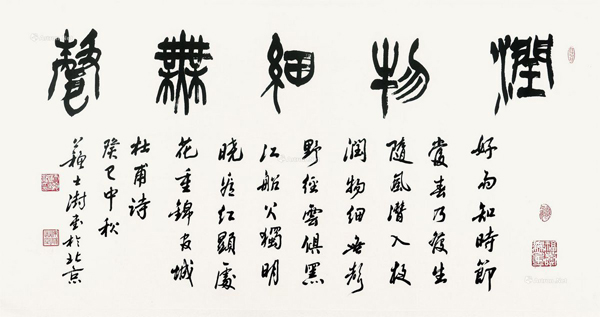 潤物細無聲
好雨知時節
當春乃發生
隨風潛入夜
潤物細無聲
野徑雲俱黑
江船火獨明
曉看紅顯處
花重錦官城
杜甫詩
癸巳中秋
蘇士澍書於北京